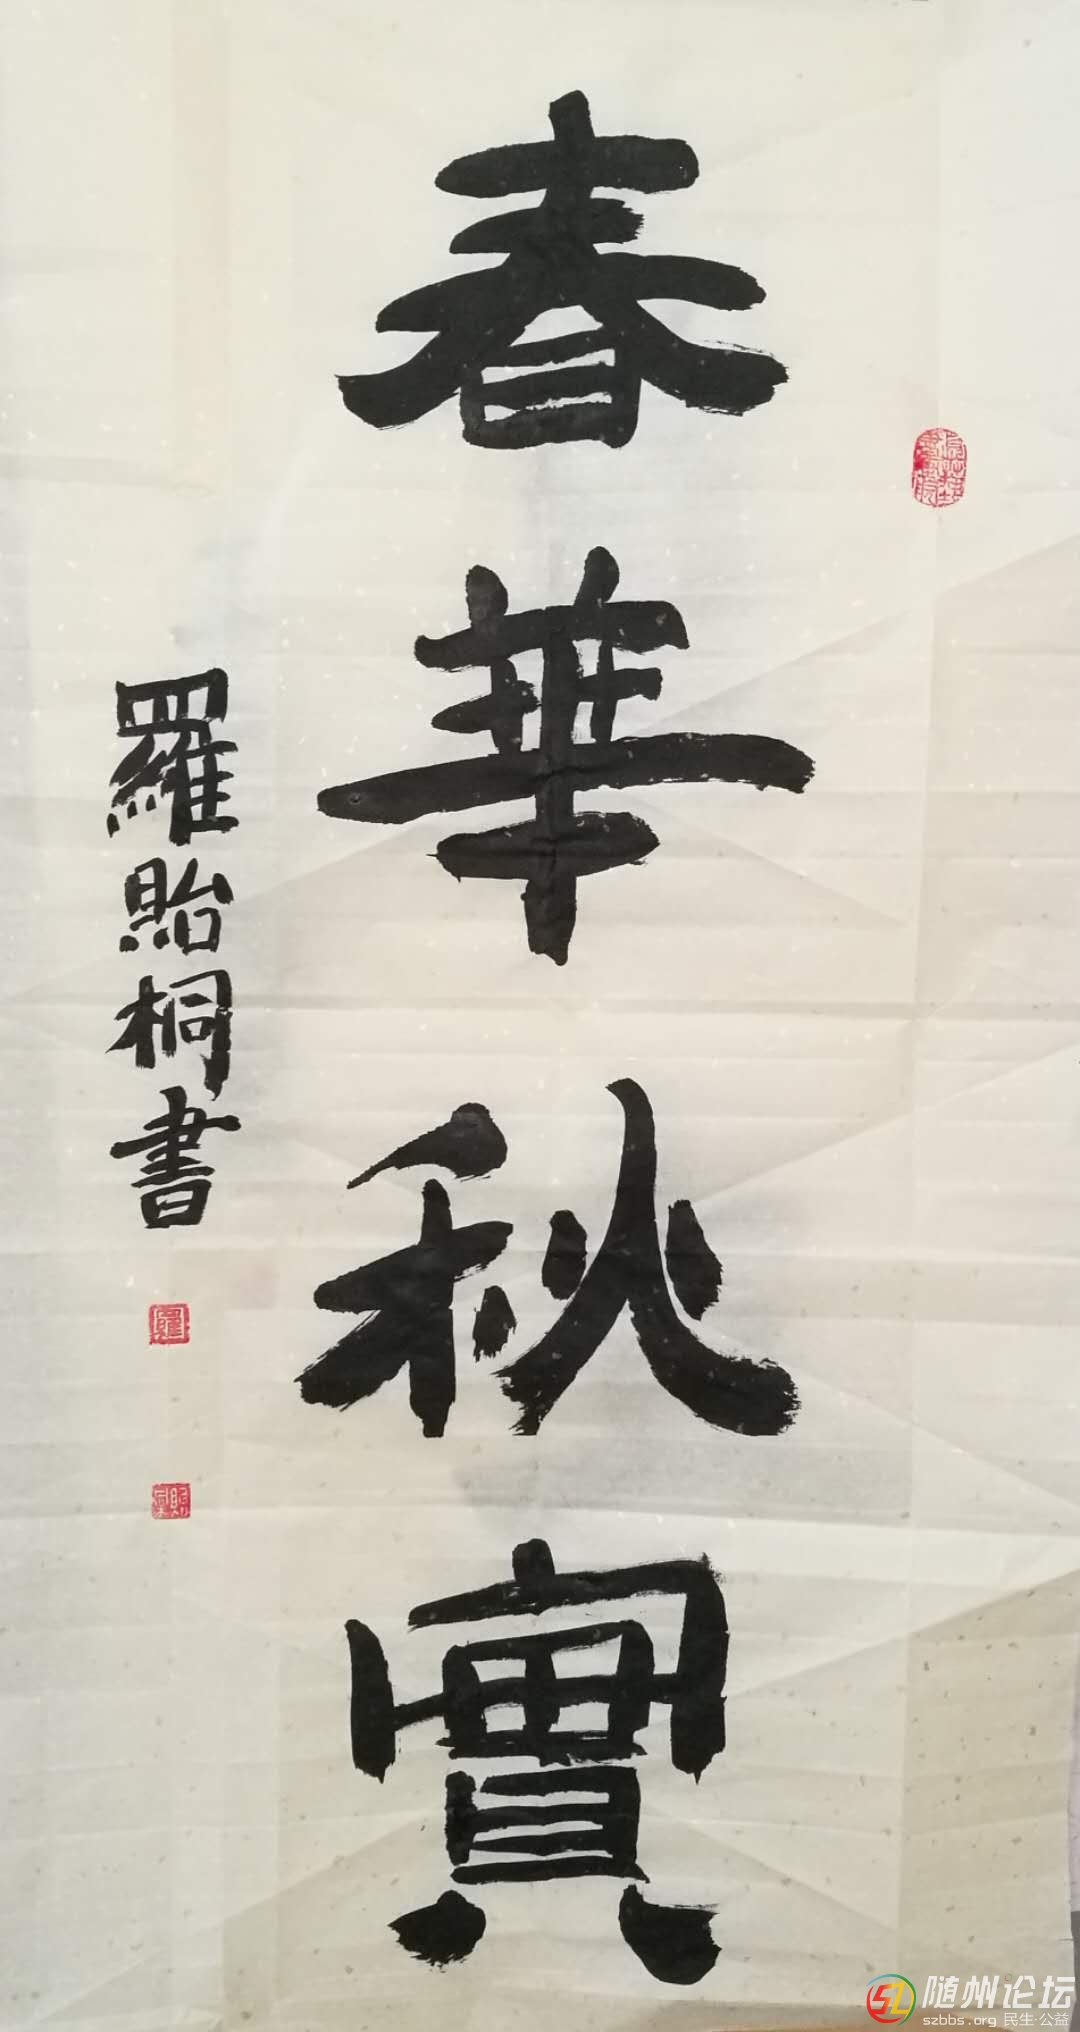 春華秋實
羅貽桐書
随州论坛
szbbs.org 民生·公益